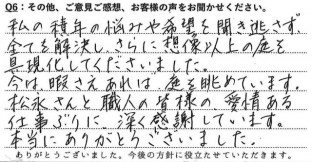 Q6：その他、ご意見ご感想、お客様の声をお聞かせください。
私の積年の悩みや希望を聞き逃さず、
全てを解決し、さらに想像以上の庭を
具現化してくださいました。
今は、暇さえあれば庭を眺めています。
松永さんと職人の皆様の、愛情ある
仕事ぶりに深く感謝しています。
本当にありがとうございました。
ありがとうございました。今後の方針に役立たせていただきます。